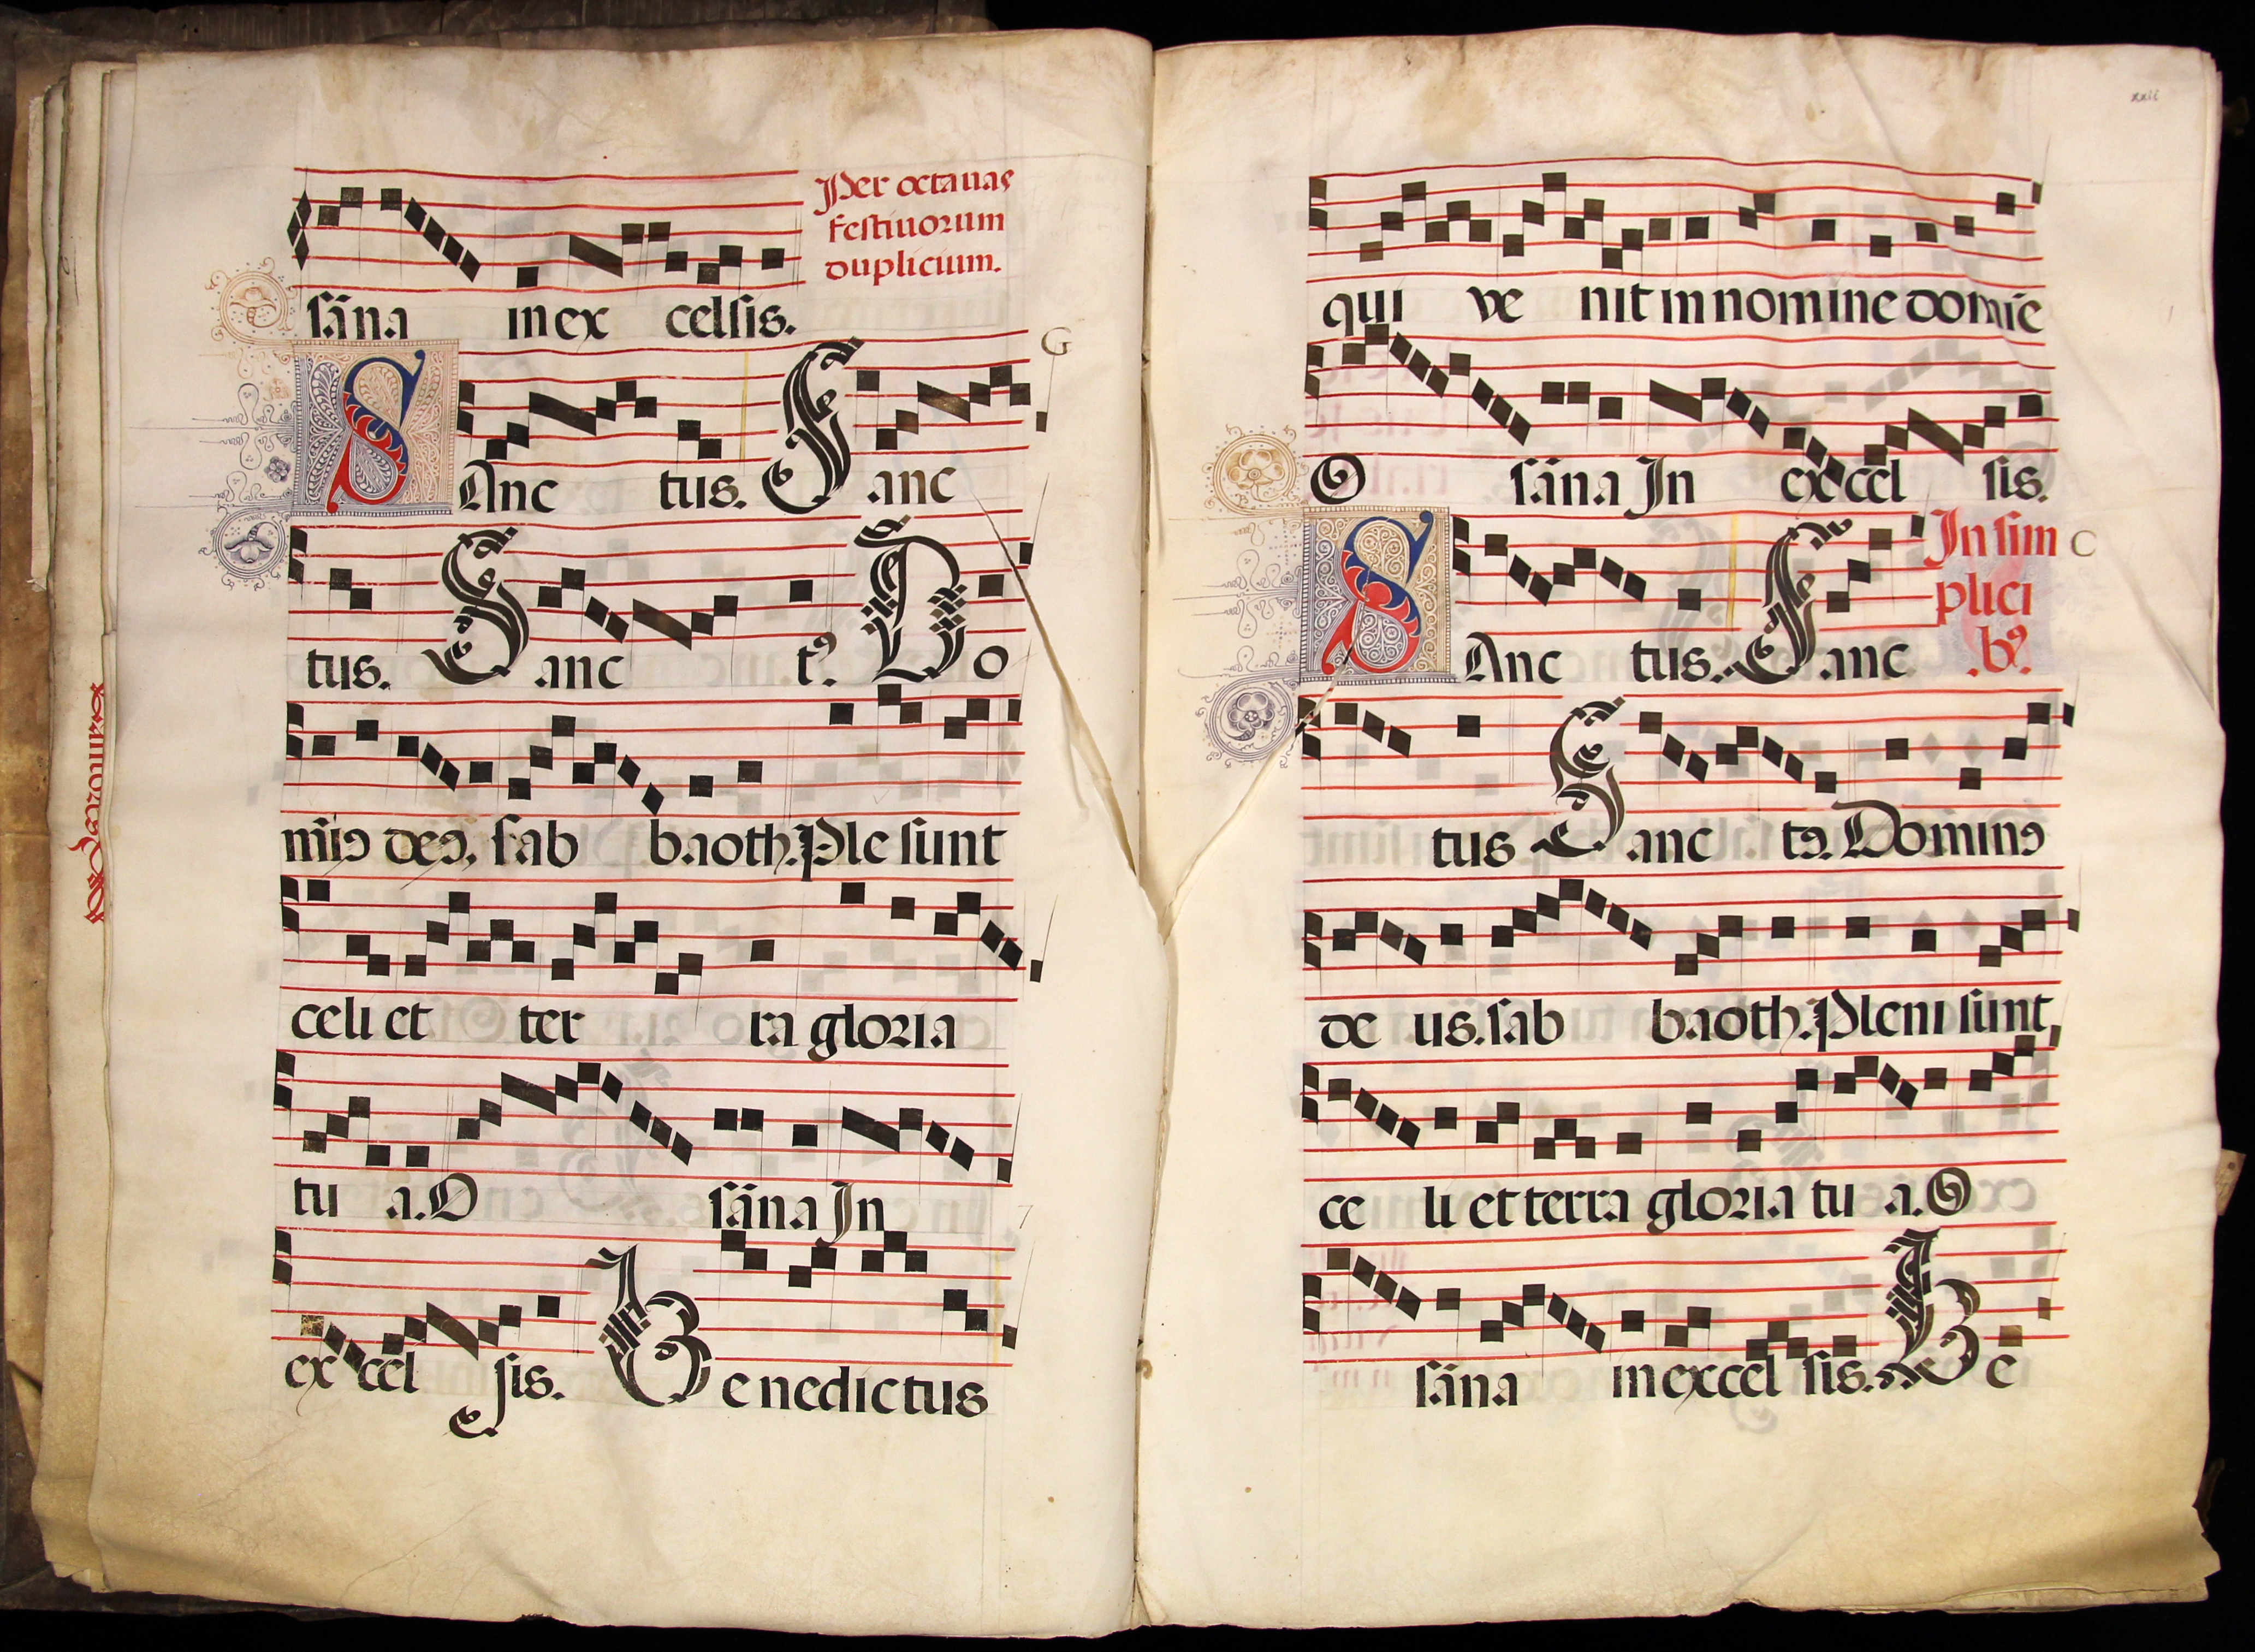 Per octauas
festiuorum
duplicium.
sãna in ex celsis.
G
SAnc tus. Sanc
tus. Sanc tꝰ. Do
mĩꝰ deꝰ. sab baoth. Ple sunt
celi et ter ra gloria
tu a. O sãna In
ex cel sis. Benedictus
xxii
qui ve nit in nomine domĩe
O sãna In ex cel sis.
In sim
plici
bꝰ.
C
SAnc tus. Sanc
tus Sanc tꝰ. Dominꝰ
de us. sab baoth. Pleni sunt
ce li et terra gloria tu a. O
sãna in excel sis. Be